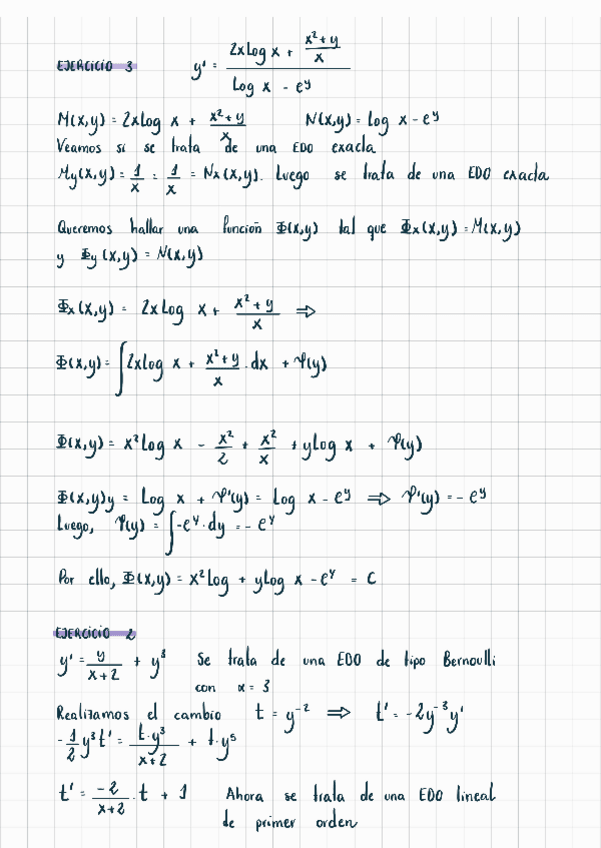 EJERCICIO 3 y' = (2xLog x + (x²+y)/x) / (Log x - e^y)
M(x,y) = 2xLog x + (x²+y)/x N(x,y) = log x - e^y
Veamos si se trata de una EDO exacta
My(x,y) = 1/x = 1/x = Nx(x,y). Luego se trata de una EDO exacta
Queremos hallar una función Φ(x,y) tal que Φx(x,y) = M(x,y)
y Φy(x,y) = N(x,y)
Φx(x,y) = 2xLog x + (x²+y)/x ⇒
Φ(x,y) = ∫2xlog x + (x²+y)/x · dx + Ψ(y)
Φ(x,y) = x²Log x - x²/2 + x²/x + yLog x + Ψ(y)
Φ(x,y)y = Log x + Ψ'(y) = Log x - e^y ⇒ Ψ'(y) = -e^y
Luego, Ψ(y) = ∫-e^y·dy = -e^y
Por ello, Φ(x,y) = x²Log + yLog x - e^y = C
EJERCICIO 2
y' = y/(x+2) + y³ Se trata de una EDO de tipo Bernoulli
con α = 3
Realizamos el cambio t = y⁻² ⇒ t' = -2y⁻³y'
-1/2 y³t' = t·y³/(x+2) + t·y⁵
t' = -2/(x+2) · t + 1 Ahora se trata de una EDO lineal
de primer orden